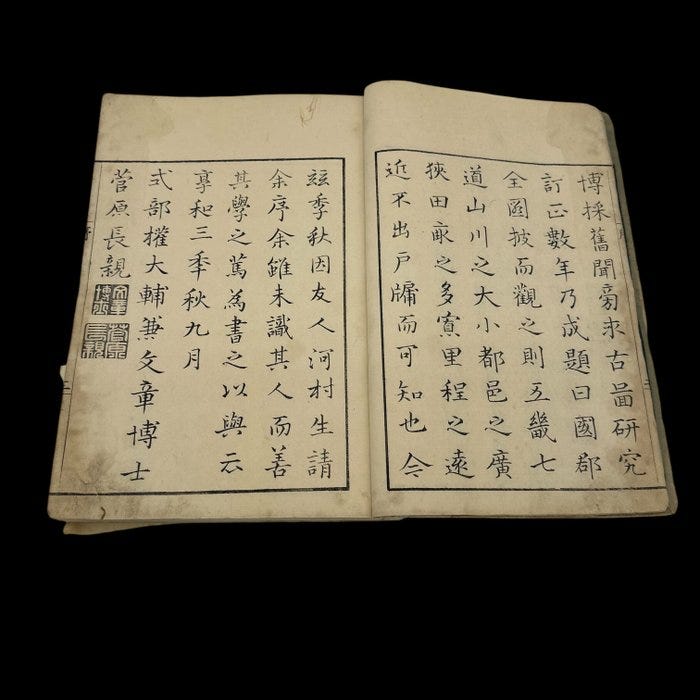 博採舊聞旁求古圖研究
訂正數年乃成題曰國郡
全圖披而觀之則五畿七
道山川之大小都邑之廣
狹田畝之多寡里程之遠
近不出戶牖而可知也今
玆季秋因友人河村生請
余序余雖未識其人而善
其學之篤為書之以與云
享和三季秋九月
式部權大輔兼文章博士
菅原長親
文章博士
菅原長親
序